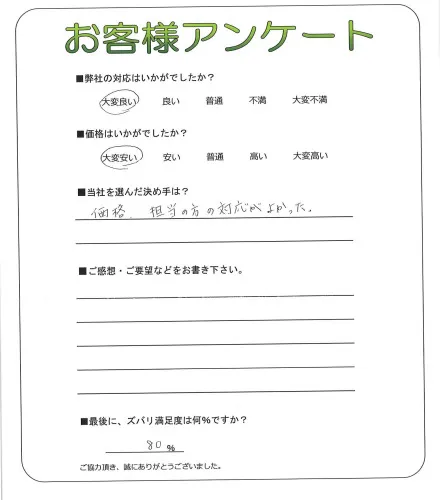 お客様アンケート
■弊社の対応はいかがでしたか?
大変良い 良い 普通 不満 大変不満
■価格はいかがでしたか?
大変安い 安い 普通 高い 大変高い
■当社を選んだ決め手は?
価格、担当の方の対応がよかった。
■ご感想・ご要望などをお書き下さい。
■最後に、ズバリ満足度は何%ですか?
80 %
ご協力頂き、誠にありがとうございました。